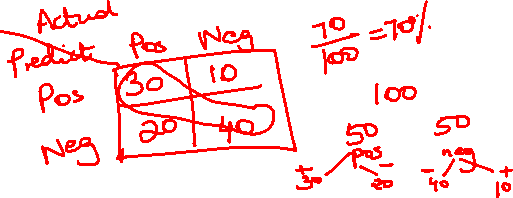 Actual
Predicti
Pos Neg
Pos 30 10
Neg 20 40
70/100 = 70%
100
50 50
pos neg
+ - - +
30 20 40 10